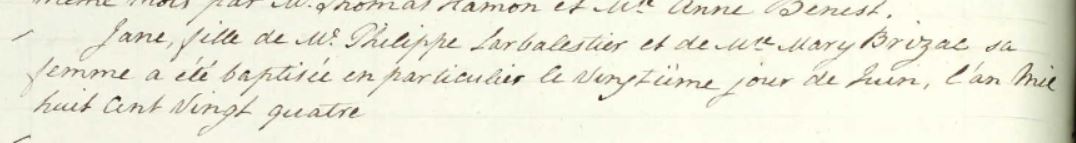 même mois par Mr. Thomas Hamon et Mlle Anne Benest.
Jane, fille de Mr. Philippe Larbalestier et de Mtte Mary Brizac sa
femme a été baptisée en particulier le vingtiime jour de Juin, l'an Mil
huit Cent Vingt quatre